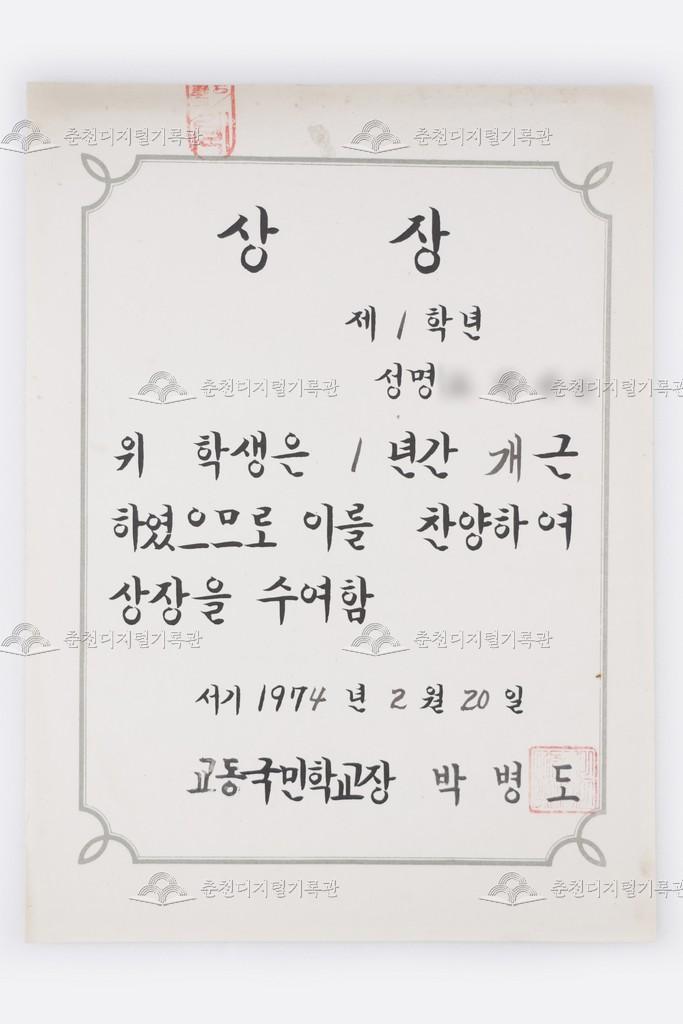 상 장
제 1 학년
성명
위 학생은 1 년간 개근
하였으므로 이를 찬양하여
상장을 수여함
서기 1974 년 2 월 20 일
교동국민학교장 박 병 도
춘천디지털기록관
춘천디지털기록관
춘천디지털기록관
춘천디지털기록관
춘천디지털기록관
춘천디지털기록관
춘천디지털기록관
춘천디지털기록관